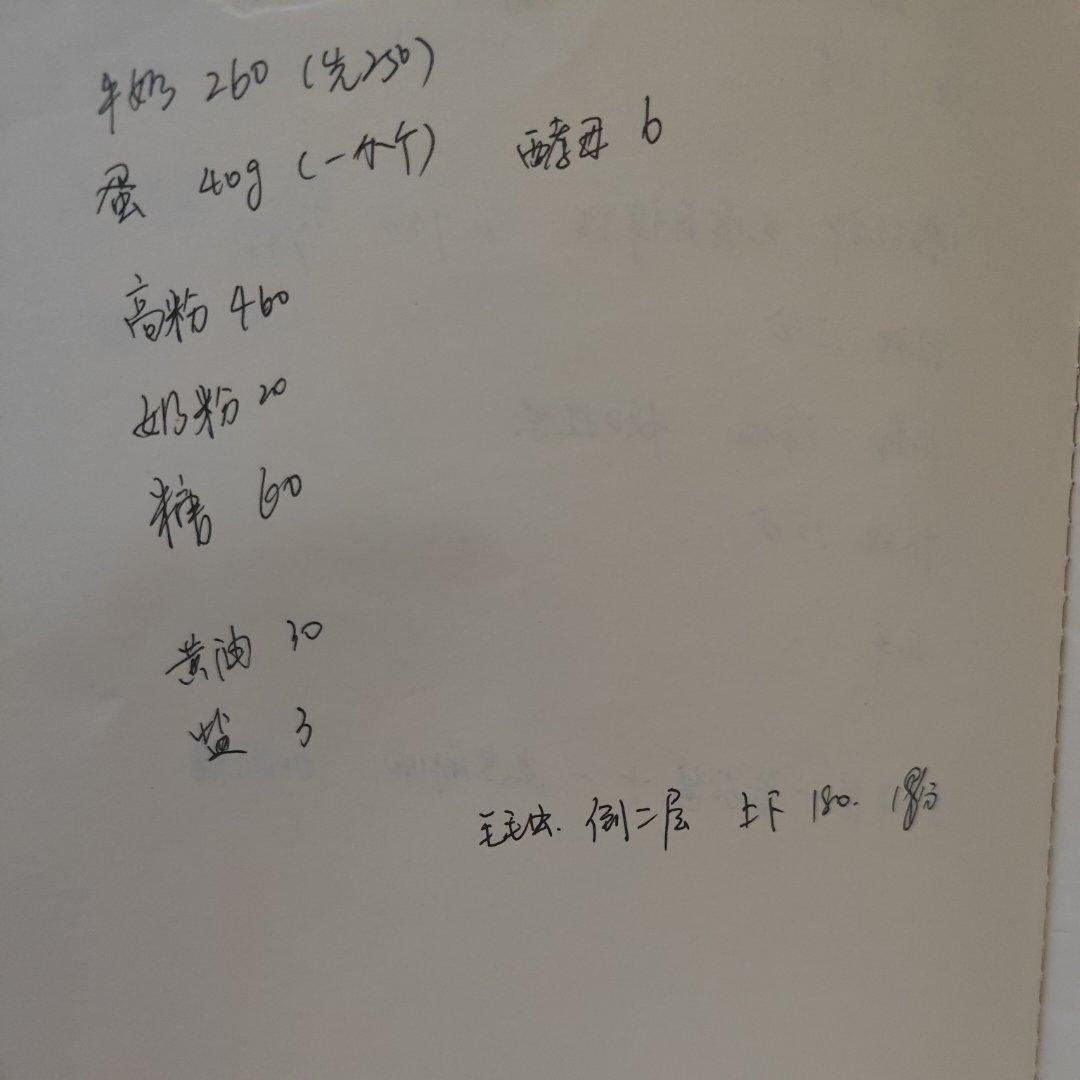 牛奶 260 (先250)
蛋 40g (一小个) 酵母 6
高粉 460
奶粉 20
糖 60
黄油 30
盐 3
毛毛虫. 倒二层 上下 180.